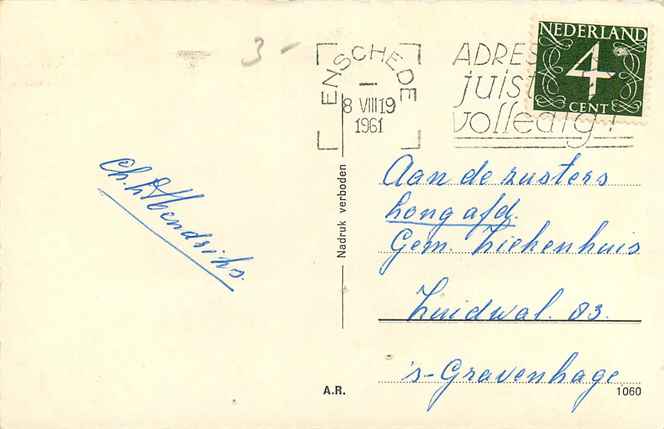 3-
ENSCHEDE
8 VIII 19
1961
ADRES
juist
volledig!
NEDERLAND
4
CENT
Ch. Hendriks.
Nadruk verboden
Aan de zusters
Long afd.
Gem. Ziekenhuis
Zuidwal. 83.
's-Gravenhage
A.R.
1060